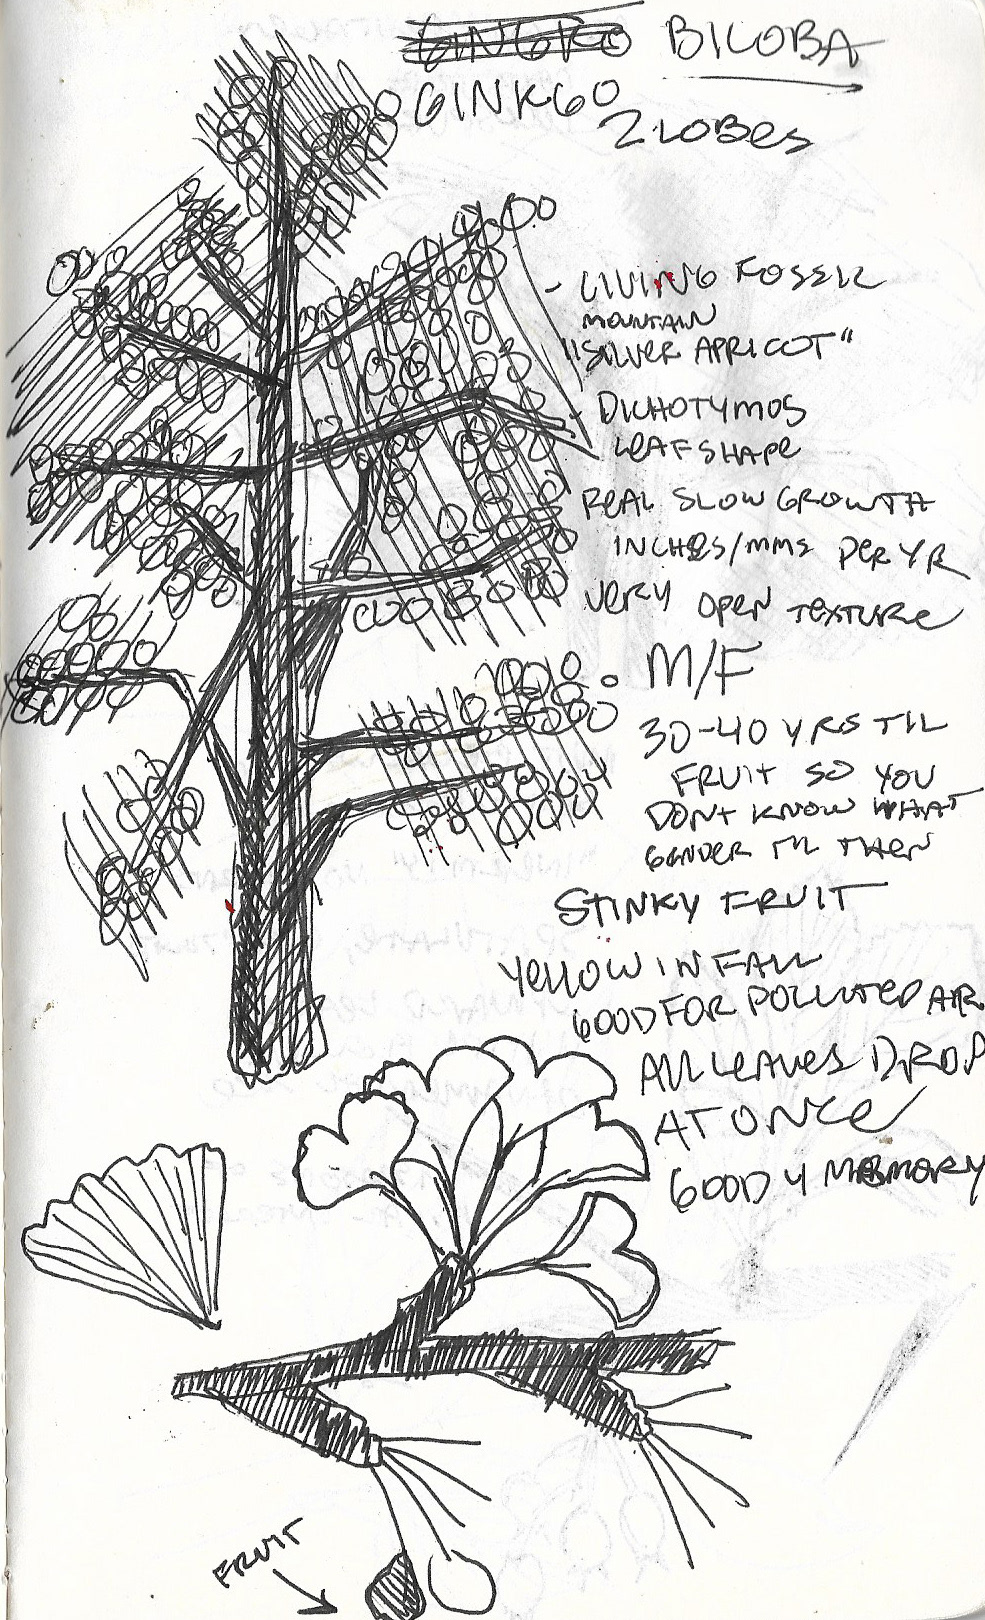 GINGKO BILOBA
GINKGO
2 LOBES
- LIVING FOSSIL
MOUNTAIN
"SILVER APRICOT"
- DICHOTYMOS
LEAF SHAPE
REAL SLOW GROWTH
INCHES/MMS PER YR
VERY OPEN TEXTURE
M/F
30-40 YRS TIL
FRUIT SO YOU
DONT KNOW WHAT
GENDER TIL THEN
STINKY FRUIT
YELLOW IN FALL
GOOD FOR POLLUTED AIR
ALL LEAVES DROP
AT ONCE
GOOD 4 MEMORY
FRUIT